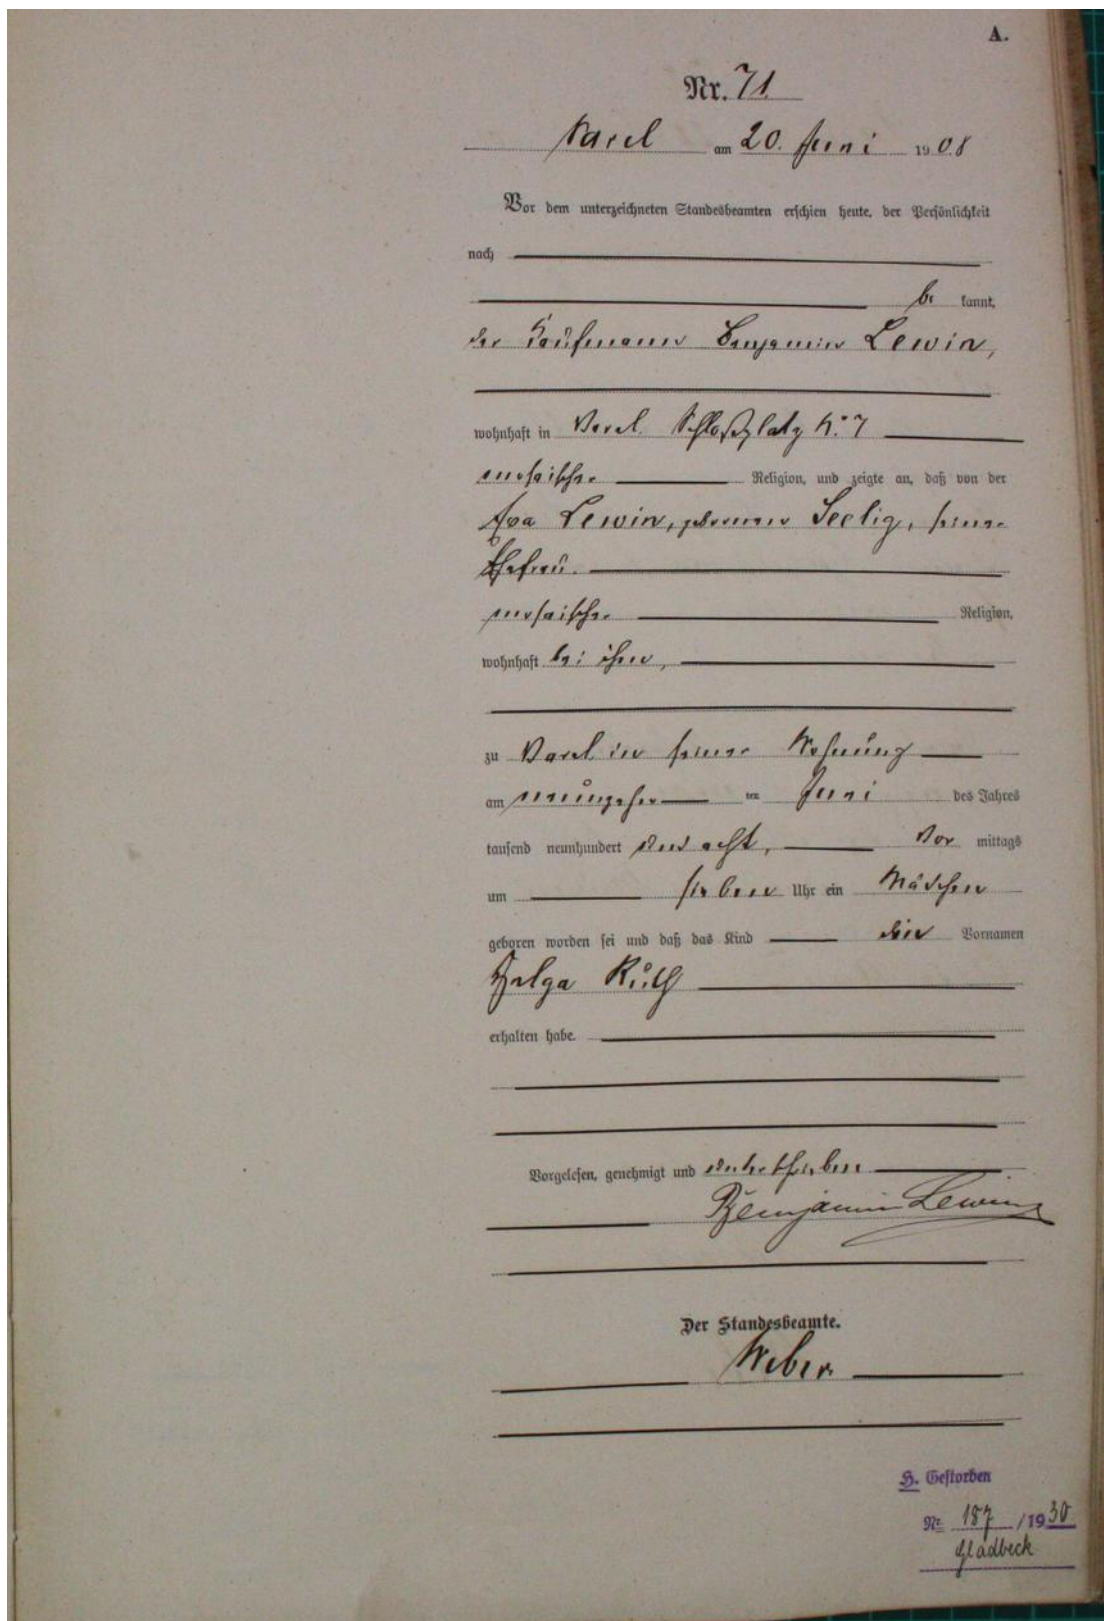 A.
Nr. 71
Varel am 20. Juni 1908
Vor dem unterzeichneten Standesbeamten erschien heute, der Persönlichkeit
nach
be kannt,
der Kaufmann Benjamin Lewin,
wohnhaft in Varel. Schloßplatz No. 7
mosaischer Religion, und zeigte an, daß von der
Eva Lewin, geborenen Seelig, seiner
Ehefrau.
mosaischer Religion,
wohnhaft bei ihm,
zu Varel in seiner Wohnung
am neunzehn ten Juni des Jahres
tausend neunhundert und acht, Vor mittags
um sieben Uhr ein Mädchen
geboren worden sei und daß das Kind die Vornamen
Helga Ruth
erhalten habe.
Vorgelesen, genehmigt und unterschrieben
Benjamin Lewin
Der Standesbeamte.
Weber
H. Gestorben
Nr. 187 / 1930
Gladbeck